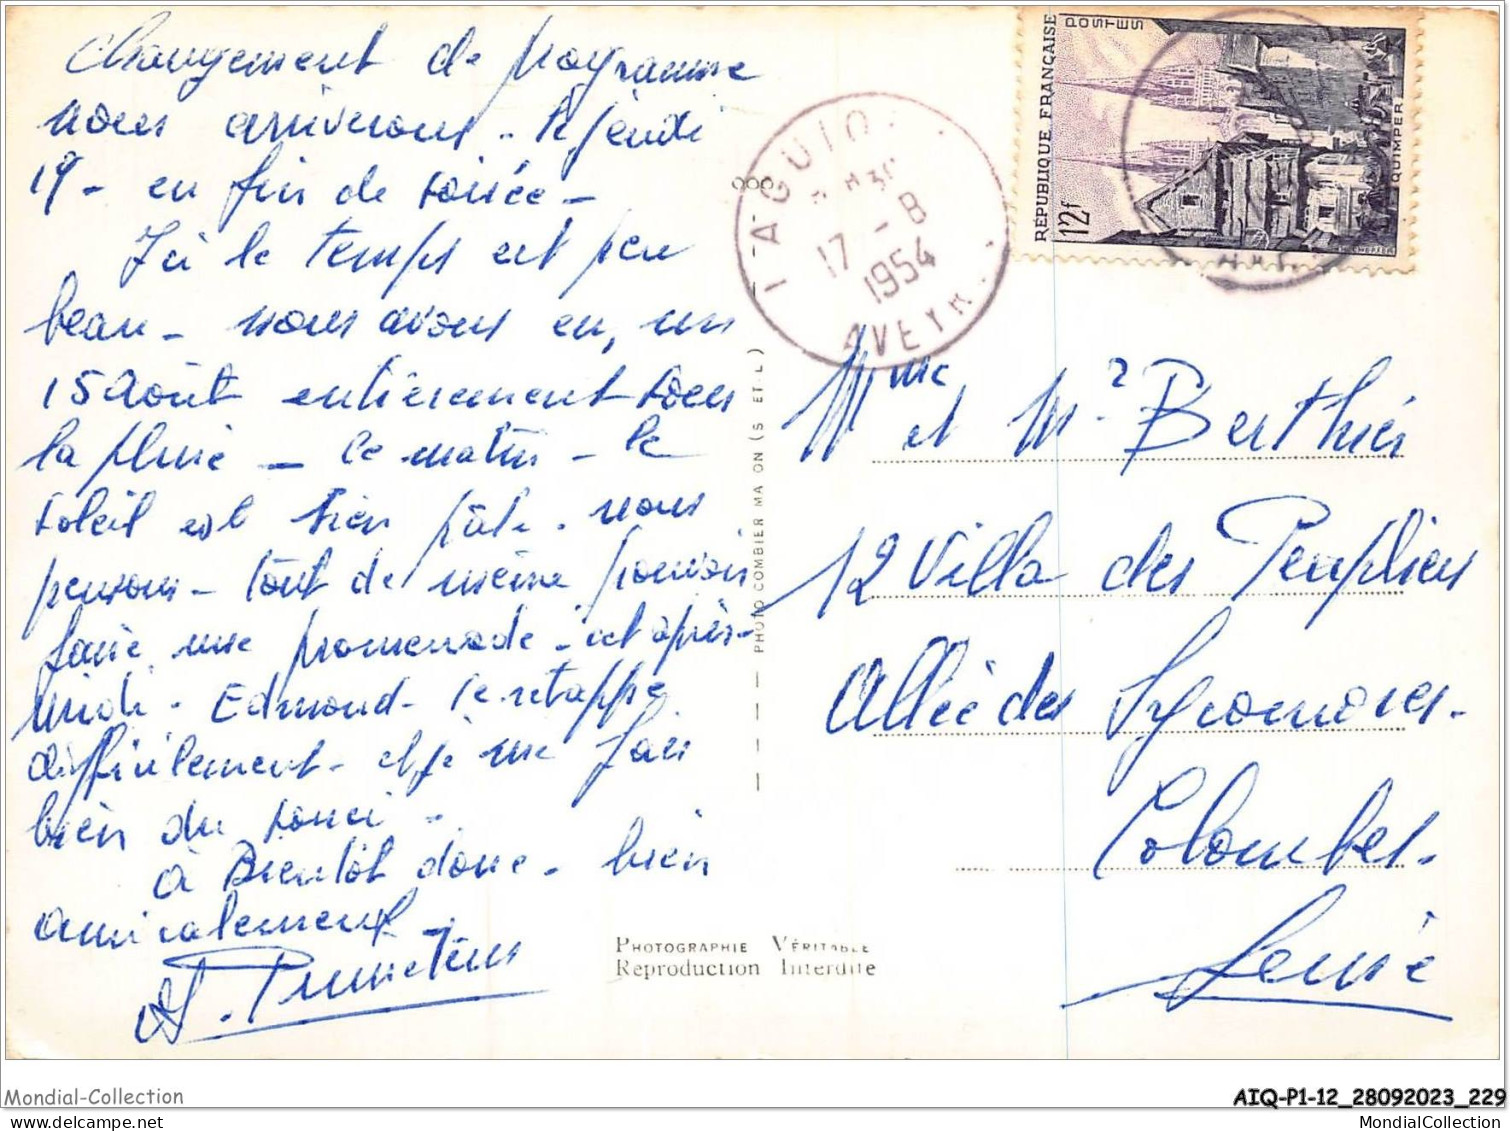 Changement de programme
nous arriverons - le jeudi
19 - en fin de soirée -
Ici le temps est peu
beau - nous avons eu, un
15 Août entièrement sous
la pluie - ce matin - le
soleil est bien pâle. nous
pensons - tout de même pouvoir
faire une promenade - cet après-
midi - Edmond - se retappe
difficilement - et je me fais
bien du souci -
à Bientôt donc - bien
amicalement
PHOTO COMBIER MACON (S ET L)
PHOTOGRAPHIE VÉRITABLE
Reproduction Interdite
17 - 8
1954
AVEYR
RÉPUBLIQUE FRANÇAISE
POSTES
12f
QUIMPER
Mme et Mr Berthier
12 Villa des Peupliers
Allée des Sycomores -
Colombes -
Seine
Mondial-Collection
AIQ-P1-12_28092023_229
MondialCollection